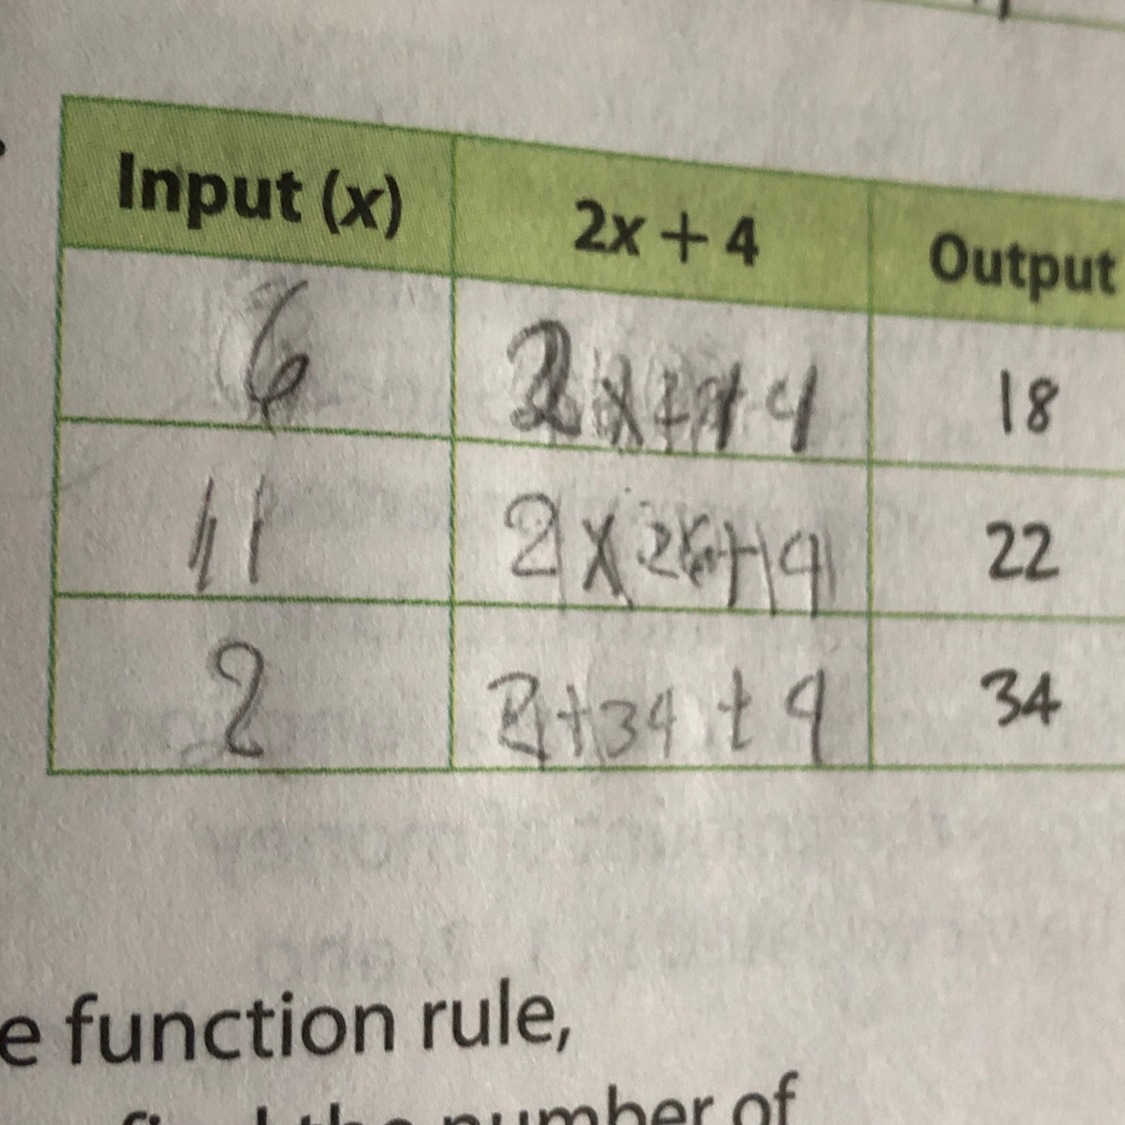 Input (x) 2x + 4 Output
6 4 18
11 2 x 22
2 2+34 + 4 34
e function rule,
the number of